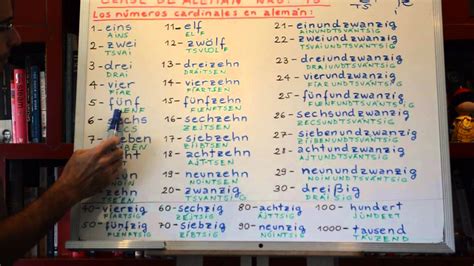 CLASE DE ALEMAN
Los números cardinales en alemán:
1- eins
AINS
2- zwei
TSVAI
3- drei
DRAI
4- vier
FIAR
5- fünf
6- sechs
7-
8
11- elf
ELF
12- zwölf
TSVÖLF
13- dreizehn
DRAITSEN
14- vierzehn
FIARTSEN
15- fünfzehn
16- sechzehn
17- siebzehn
18- achtzehn
AJT-TSEN
19- neunzehn
NOINTSEN
20- zwanzig
TSVANTSIG
21- einundzwanzig
AINUNDTSVANTSIG
22- zweiundzwanzig
TSVAIUNDTSVANTSIG
23- dreiundzwanzig
DRAIUNDTSVANTSIG
24- vierundzwanzig
FIARUNDTSVANTSIG
25- fünfundzwanzig
26- sechsundzwanzig
27- siebenundzwanzig
28- achtundzwanzig
AJTUNDTSVANTSIG
29- neunundzwanzig
NOINUNDTSVANTSIG
30- dreißig
40- vierzig
FIARTSIG
50- fünfzig
60- sechzig
70- siebzig
80- achtzig
AJTSIG
90- neunzig
NOINTSIG
100- hundert
JUNDERT
1000- tausend
TAUZEND